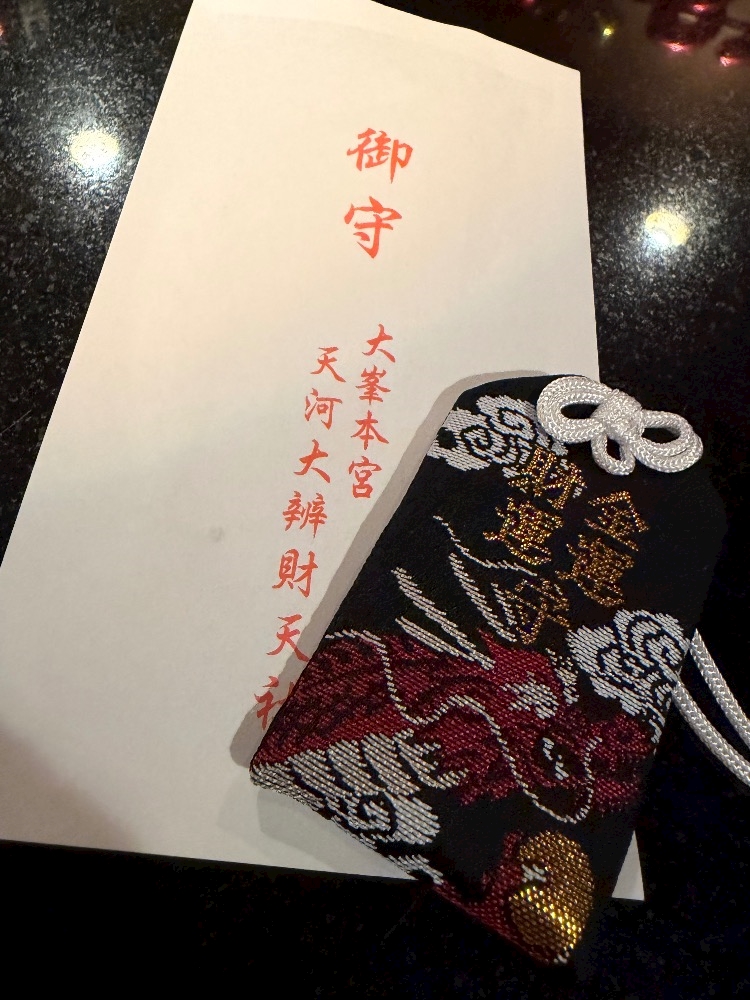 御守
大峯本宮
天河大辨財天社
金運
財運守